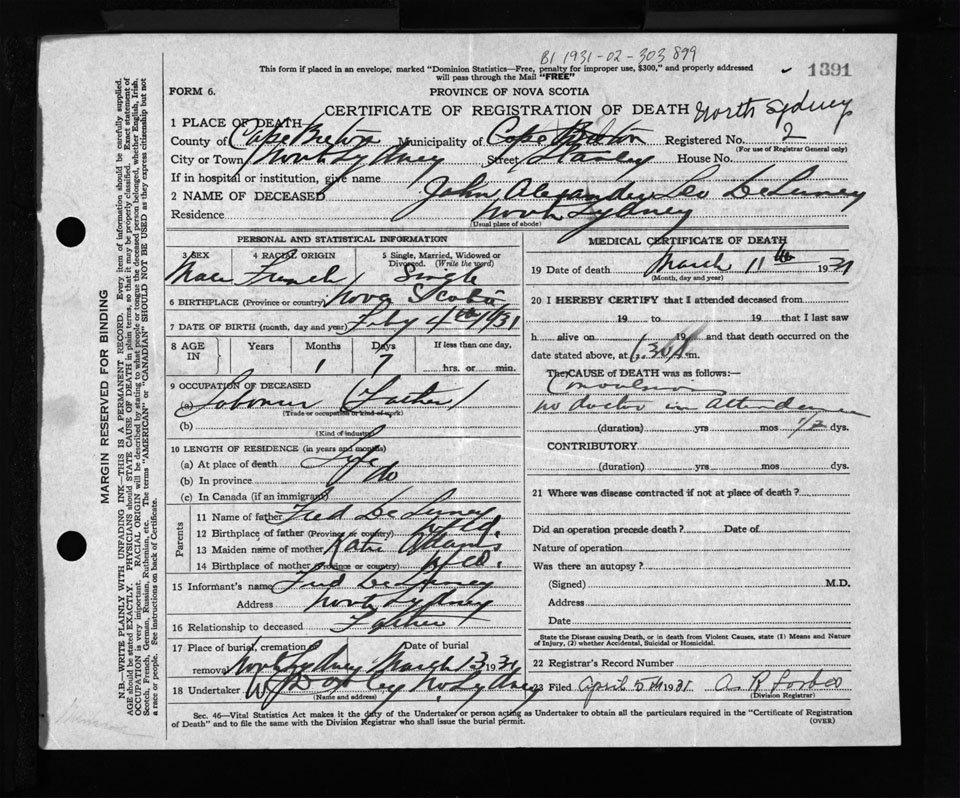 B1 1931-02-303899
1391
This form if placed in an envelope, marked "Dominion Statistics—Free, penalty for improper use, $300," and properly addressed
will pass through the Mail "FREE"
FORM 6.
PROVINCE OF NOVA SCOTIA
CERTIFICATE OF REGISTRATION OF DEATH
North Sydney
1 PLACE OF DEATH
County of Cape Breton Municipality of Cape Breton Registered No. 2
(For use of Registrar General only)
City or Town North Sydney Street Stanley House No.
If in hospital or institution, give name
2 NAME OF DECEASED John Alexander Leo DeLuney
Residence North Sydney
(Usual place of abode)
PERSONAL AND STATISTICAL INFORMATION
3 SEX 4 RACIAL ORIGIN 5 Single, Married, Widowed or Divorced. (Write the word)
Male French Single
6 BIRTHPLACE (Province or country) Nova Scotia
7 DATE OF BIRTH (month, day and year) Feby 4th 1931
8 AGE IN Years Months Days If less than one day,
1 7 hrs. or min.
9 OCCUPATION OF DECEASED
(a) Laborer (Father)
(Trade or occupation or kind of work)
(b)
(Kind of industry)
10 LENGTH OF RESIDENCE (in years and months)
(a) At place of death Life
(b) In province do
(c) In Canada (if an immigrant)
Parents
11 Name of father Fred DeLuney
12 Birthplace of father (Province or country) Nfld.
13 Maiden name of mother Katie Adams
14 Birthplace of mother (Province or country) Nfld.
15 Informant's name Fred DeLuney
Address North Sydney
16 Relationship to deceased Father
17 Place of burial, cremation
removal North Sydney March 13 1931
18 Undertaker No. Sydney
(Name and address)
MEDICAL CERTIFICATE OF DEATH
19 Date of death March 11th 1931
(Month, day and year)
20 I HEREBY CERTIFY that I attended deceased from
19 to 19 that I last saw
h alive on 19 and that death occurred on
date stated above, at 6.30 A m.
The CAUSE of DEATH was as follows:—
Convulsions
no doctor in attendance
(duration) yrs mos 1/2 dys.
CONTRIBUTORY
(duration) yrs. mos. dys.
21 Where was disease contracted if not at place of death?
Did an operation precede death? Date of
Nature of operation
Was there an autopsy?
(Signed) M.D.
Address
Date
State the Disease causing Death, or in death from Violent Causes, state (1) Means and Nature
of Injury, (2) whether Accidental, Suicidal or Homicidal.
22 Registrar's Record Number
23 Filed April 5th 1931 A. R. Forbes
(Division Registrar)
Sec. 46—Vital Statistics Act makes it the duty of the Undertaker or person acting as Undertaker to obtain all the particulars required in the "Certificate of Registration
of Death" and to file the same with the Division Registrar who shall issue the burial permit.
(OVER)
MARGIN RESERVED FOR BINDING
N.B.—WRITE PLAINLY WITH UNFADING INK—THIS IS A PERMANENT RECORD. Every item of information should be carefully supplied.
AGE should be stated EXACTLY. PHYSICIANS should STATE CAUSE OF DEATH in plain terms, so that it may be properly classified. Exact statement of
OCCUPATION is very important. RACIAL ORIGIN will be described by stating to what people or tongue the deceased person belonged, whether English, Irish,
Scotch, French, German, Russian, Ruthenian, etc. The terms "AMERICAN" or "CANADIAN" SHOULD NOT BE USED as they express citizenship but not
a race or people. See instructions on back of Certificate.